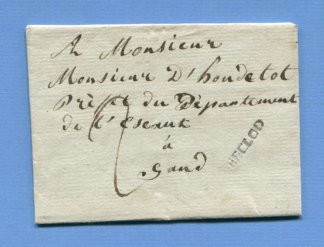 A Monsieur
Monsieur D'houdetot
Préfet du Département
de l'Escaut
à
Gand
EECLOO